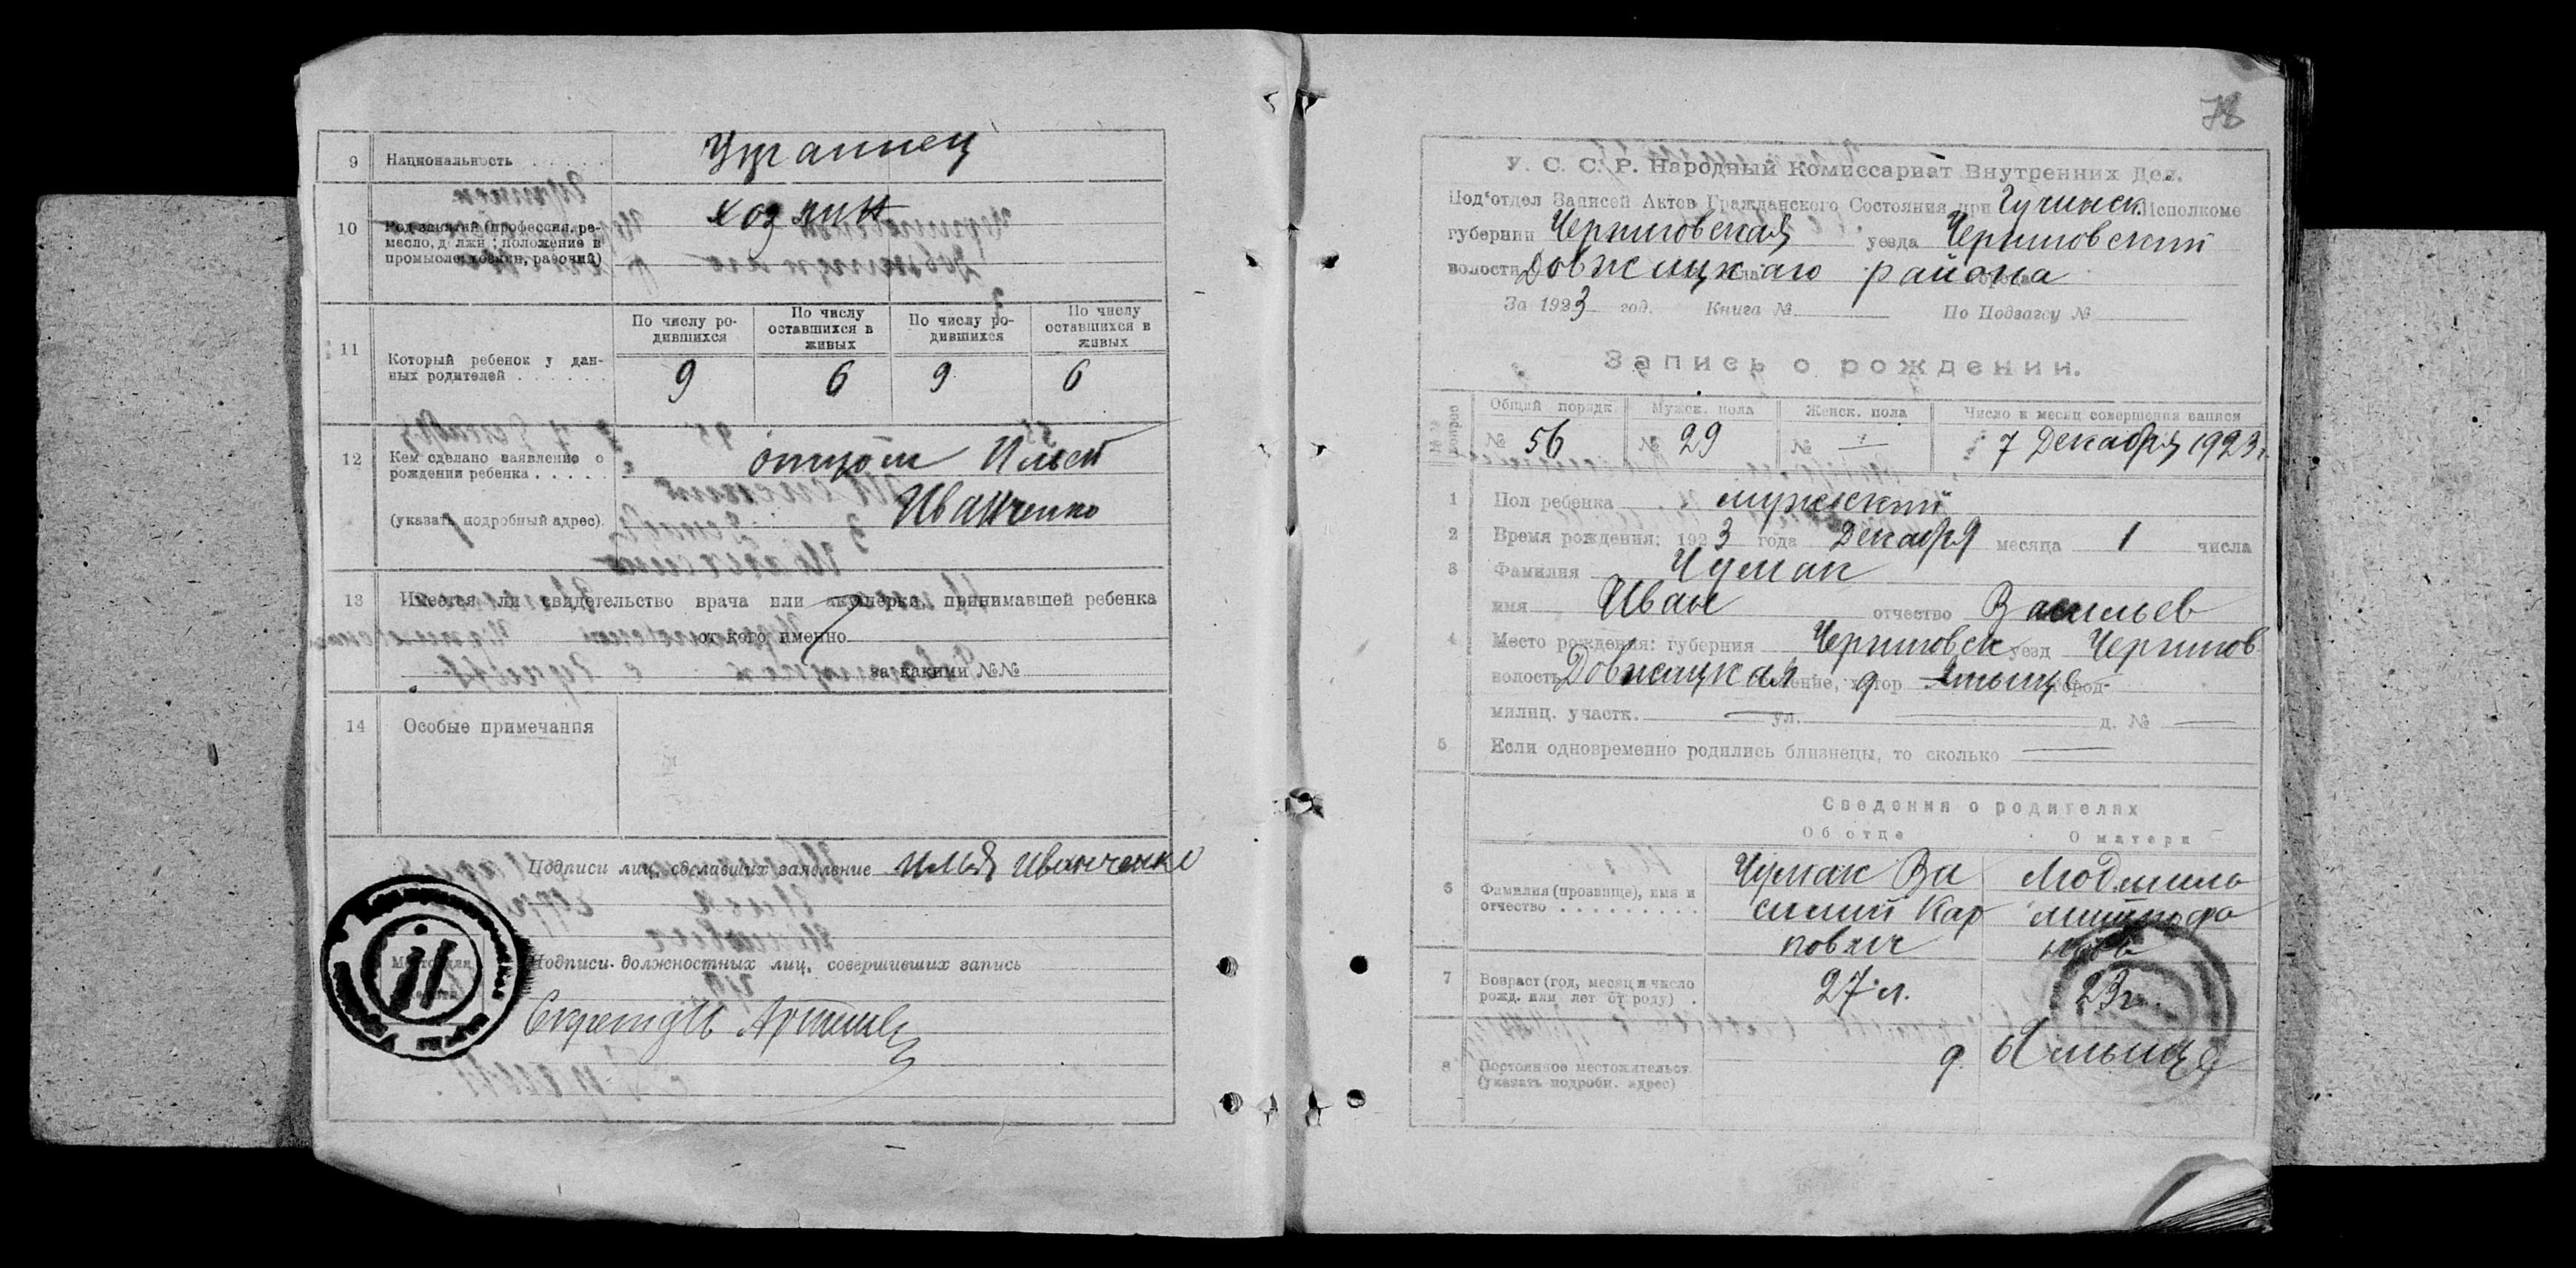 9 Национальность . . . . . Украинец
10 Род занятий (профессия, ре-
месло, должн.: положение в
промысле: хозяин, рабочий)
хозяин
11 Который ребенок у дан-
ных родителей . . . . . .
По числу ро-
дившихся
По числу
оставшихся в
живых
По числу ро-
дившихся
По числу
оставшихся в
живых
9 6 9 6
12 Кем сделано заявление о
рождении ребенка . . . . .
(указать подробный адрес).
отцом Ильей
Иванченко
13 Имеется ли свидетельство врача или акушерки, принимавшей ребенка
от кого именно
за какими №№
14 Особые примечания
Подписи лиц, сделавших заявление Илья Иванченко
Место для
печати
Подписи должностных лиц, совершивших запись
Секретарь
78
У. С. С. Р. Народный Комиссариат Внутренних Дел.
Под'отдел Записей Актов Гражданского Состояния при Гучинск. Исполкоме
губернии Черниговская уезда Черниговский
волости Довжицкаго района
За 1923 год. Книга № По Подзагсу №
Запись о рождении.
№№ вопроса
Общий порядк. Мужск. пола Женск. пола Число и месяц совершения записи
№ 56 № 29 № — 7 Декабря 1923 г.
1 Пол ребенка мужский
2 Время рождения: 1923 года Декабря месяца 1 числа
3 Фамилия Чумак
имя Иван отчество Васильев
4 Место рождения: губерния Черниговск уезд Чернигов
волость Довжицкая селение, хутор д. Ямыще город
милиц. участк. — ул. — д. № —
5 Если одновременно родились близнецы, то сколько —
Сведения о родителях
Об отце О матери
6 Фамилия (прозвище), имя и
отчество . . . . . . . . .
Чумак Ва
силий Кар
пович
Людмила
Митрофа
нова
7 Возраст (год, месяц и число
рожд. или лет от роду) .
27 л. 23 г.
8 Постоянное местожительст.
(указать подробн. адрес)
д. Ямыще